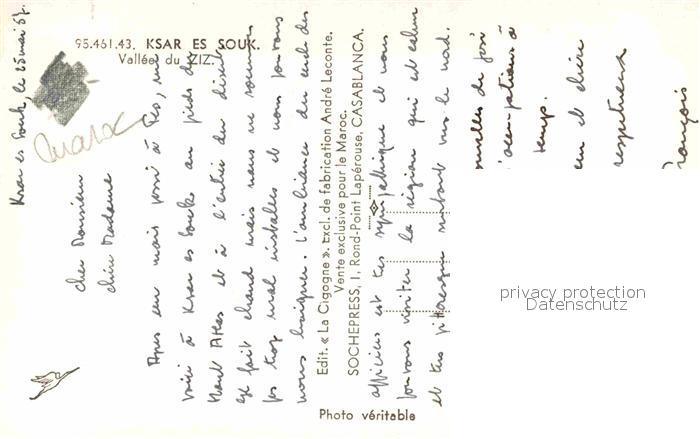 95.461.43. KSAR ES SOUK.
Vallée du ZIZ.
Maroc
Ksar es Souk, le 25 mai 67.
Cher Monsieur
chère Madame
Après un mois passé à Fes, me
voici à Ksar es Souk au pieds du
Haut Atlas et à l'entrée du désert
il fait chaud mais nous ne sommes
pas trop mal installés et nous pouvons
nous baigner. L'ambiance du
Edit. « La Cigogne ». Excl. de fabrication André Leconte.
Vente exclusive pour le Maroc.
SOCHEPRESS, 1, Rond-Point Lapérouse, CASABLANCA.
officiers est très sympathique et nous
pouvons visiter la région qui est calme
et très pittoresque surtout vers le nord.
de
temps.
et chère
respectueux
François
Photo véritable
privacy protection
Datenschutz